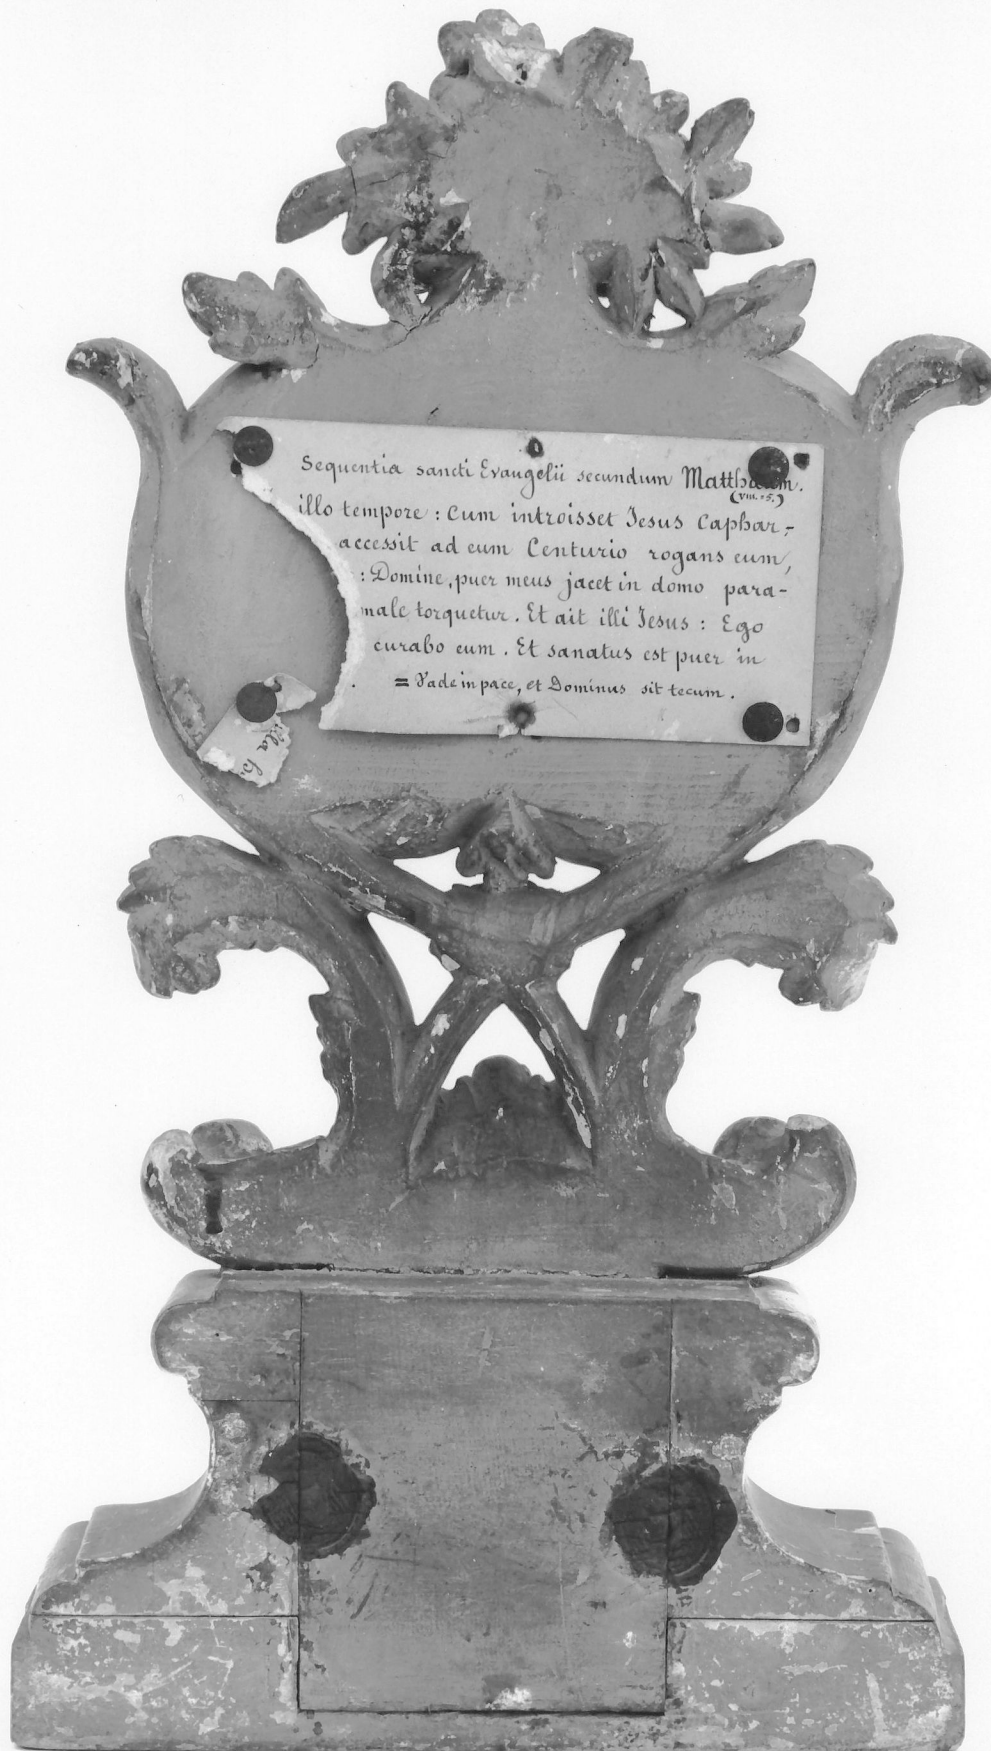 Sequentia sancti Evangelii secundum Matthæum.
(VIII.-5.)
illo tempore : Cum introisset Jesus Caphar-
accessit ad eum Centurio rogans eum,
: Domine, puer meus jacet in domo para-
male torquetur. Et ait illi Jesus : Ego
curabo eum. Et sanatus est puer in
. = Vade in pace, et Dominus sit tecum.
illa h.